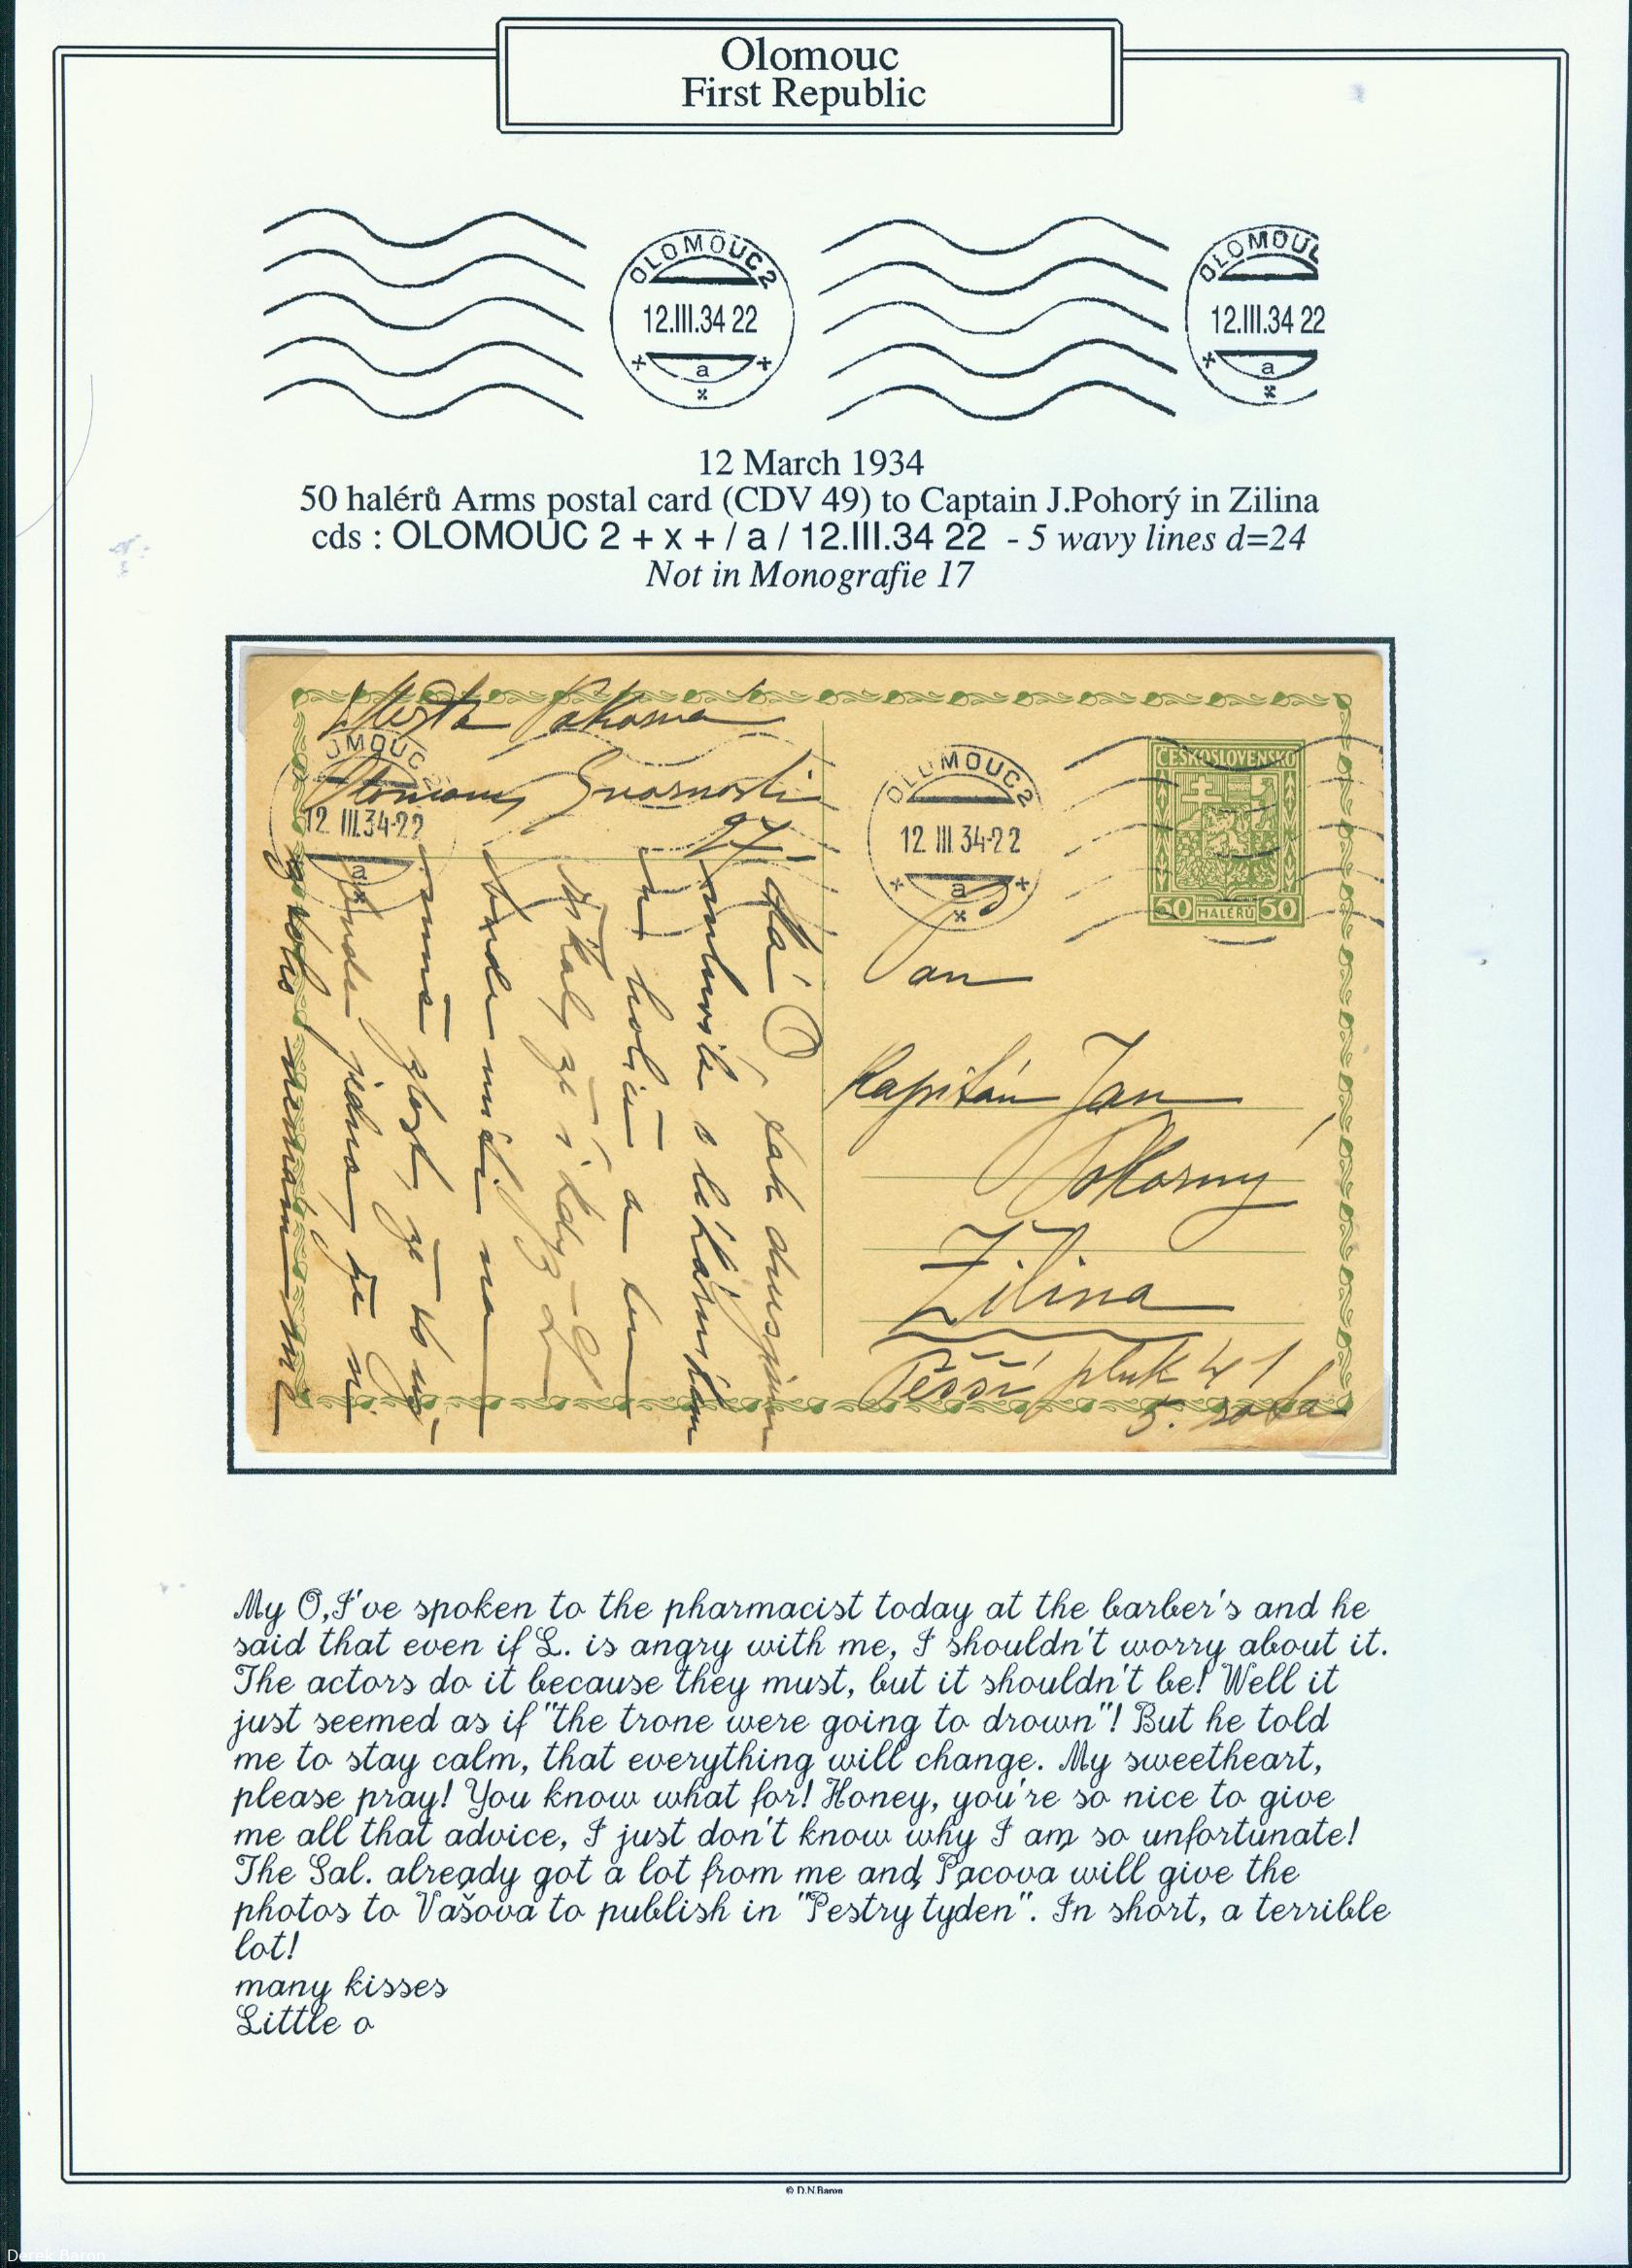 Olomouc
First Republic
OLOMOUC 2
12.III.34 22
a
OLOMOUC
12.III.34 22
a
12 March 1934
50 halérů Arms postal card (CDV 49) to Captain J.Pohorý in Zilina
cds : OLOMOUC 2 + x + / a / 12.III.34 22 - 5 wavy lines d=24
Not in Monografie 17
OMOUC 2
12 III.34-22
a
27
OLOMOUC 2
12 III 34-22
a
ČESKOSLOVENSKO
50 HALÉŘŮ 50
Pan
Kapitán Jan
Pokorný
Žilina
Pěší pluk 41
5. rota
Má O, tak dnes jsem
mluvila s lékárníkem
u holičů a ten
říkal, že i když L
bude míti na
mně zlost, že to nic
My O, I've spoken to the pharmacist today at the barber's and he
said that even if L. is angry with me, I shouldn't worry about it.
The actors do it because they must, but it shouldn't be! Well it
just seemed as if "the trone were going to drown"! But he told
me to stay calm, that everything will change. My sweetheart,
please pray! You know what for! Honey, you're so nice to give
me all that advice, I just don't know why I am so unfortunate!
The Sal. already got a lot from me and Pacova will give the
photos to Vašova to publish in "Pestry tyden". In short, a terrible
lot!
many kisses
Little o
© D.N.Baron
Derek Baron